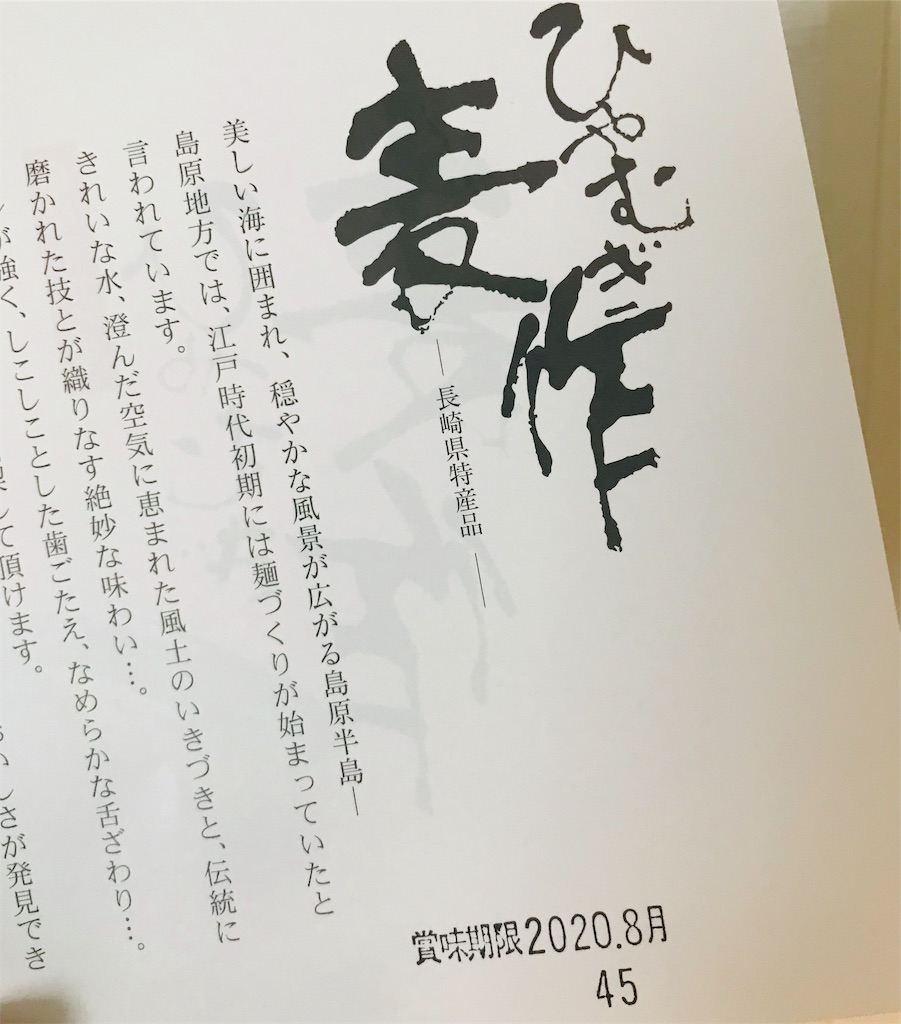 ひやむぎ
麦作
― 長崎県特産品 ―
美しい海に囲まれ、穏やかな風景が広がる島原半島―
島原地方では、江戸時代初期には麺づくりが始まっていたと
言われています。
きれいな水、澄んだ空気に恵まれた風土のいきづきと、伝統に
磨かれた技とが織りなす絶妙な味わい…。
が強く、しこしことした歯ごたえ、なめらかな舌ざわり…。
して頂けます。
しさが発見でき
賞味期限2020.8月
45